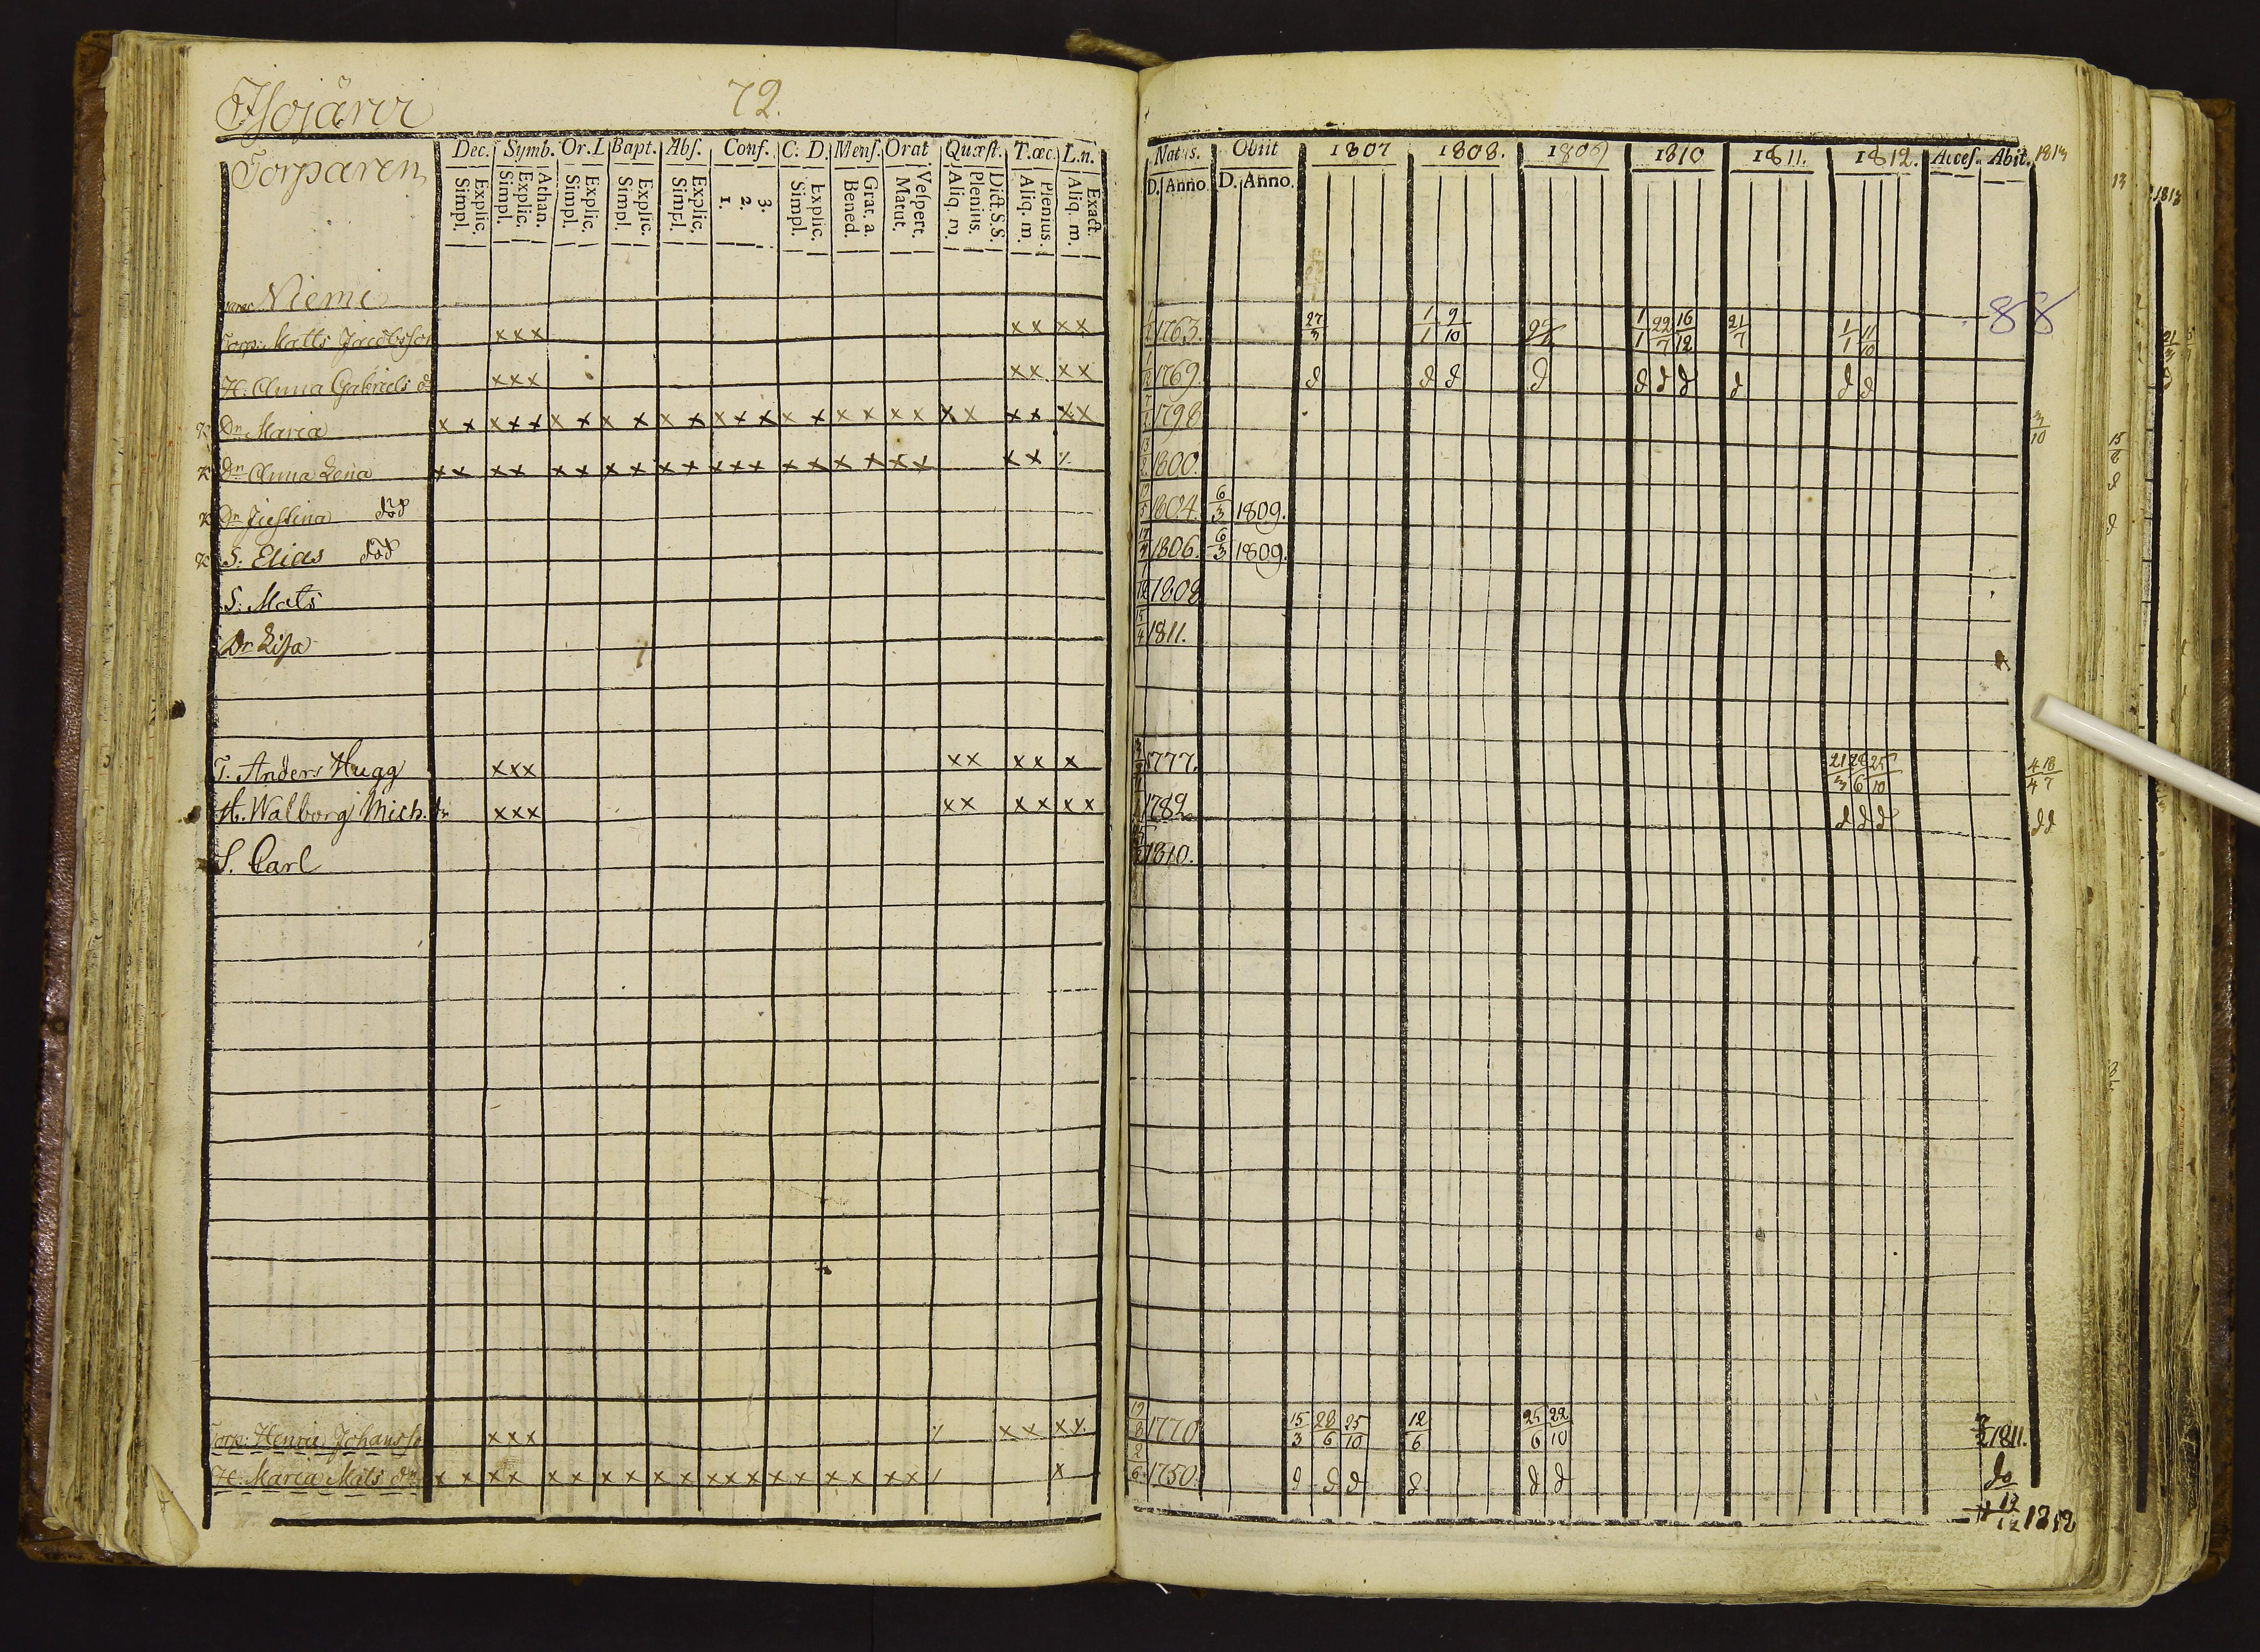 Isojärvi 72.
Torparen
Dec. Symb. Or. L Bapt. Abs. Conf. C. D. Mens. Orat Quæst. T. œc. L. n.
Explic. Simpl. Athan. Explic. Simpl. Explic. Simpl. Explic. Simpl. Explic. Simpl. 3. 2. 1. Explic. Simpl. Grat. a. Bened. Vespert. Matut. Dict. S. S. Plenius. Aliq. m. Plenius. Aliq. m. Exact. Aliq. m.
Natus. Obiit 1807 1808. 1809 1810 1811. 1812. Acces. Abit. 1813
D. Anno. D. Anno.
Niemi
88
Torp: Matts Jacobsson xxx xx xx 1763. 27/3 1/1 9/10 1/1 22/7 16/12 21/7 1/1 11/10
H. Anna Gabriels dr xxx xx xx 1769. d d d d d d d d d d
Dr Maria x x x x x x x x x x x x x x x x x x x x x x x x x x x 1798 3/10
Dr Anna Lena x x x x x x x x x x x x x x x x x x x x x 1800.
Dr Justina död 1804. 6/3 1809.
S. Elias död 1806. 6/3 1809.
S. Mats 1808
Dr Lisa 1811.
T. Anders Hugg xxx xx xx x 1777. 21/3 28/6 25/10 4/4 18/7
H. Walborg Mich. dr xxx xx xx xx 1782. d d d d d
S. Carl 1810.
Torp: Henric Johansso xxx xx xx 19/8 1770 15/3 28/6 25/10 12/6 25/6 22/10 1811.
H. Maria Mats dr x x x x x x x x x x x x x x x x x x x x x 2/6 1750. d d d d d d do
1812